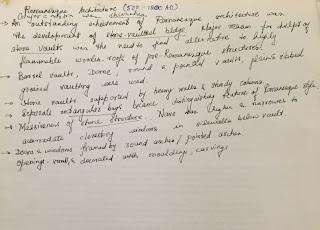 Romanesque Architecture (500 - 1200 AD)
→ An outstanding achievement of Romanesque architecture was
the development of stone-vaulted bldgs. Major reason for devlpt of
stone vaults was the need to find alternative to highly
flammable wooden roofs of pre-Romanesque structures.
→ Barrel vault, Dome, round & pointed vault plain & ribbed
groined vaulting were used.
→ Stone vaults supported by heavy walls & sturdy columns.
→ Seperate rectangular bays became distinguished feature of Romanesque style.
→ Massiveness of stone structure. Nave was higher & narrower to
accomodate clerestory windows in sidewalls below vault.
→ Doors & windows framed by round arches / pointed arches.
openings small & decorated with mouldings, carvings